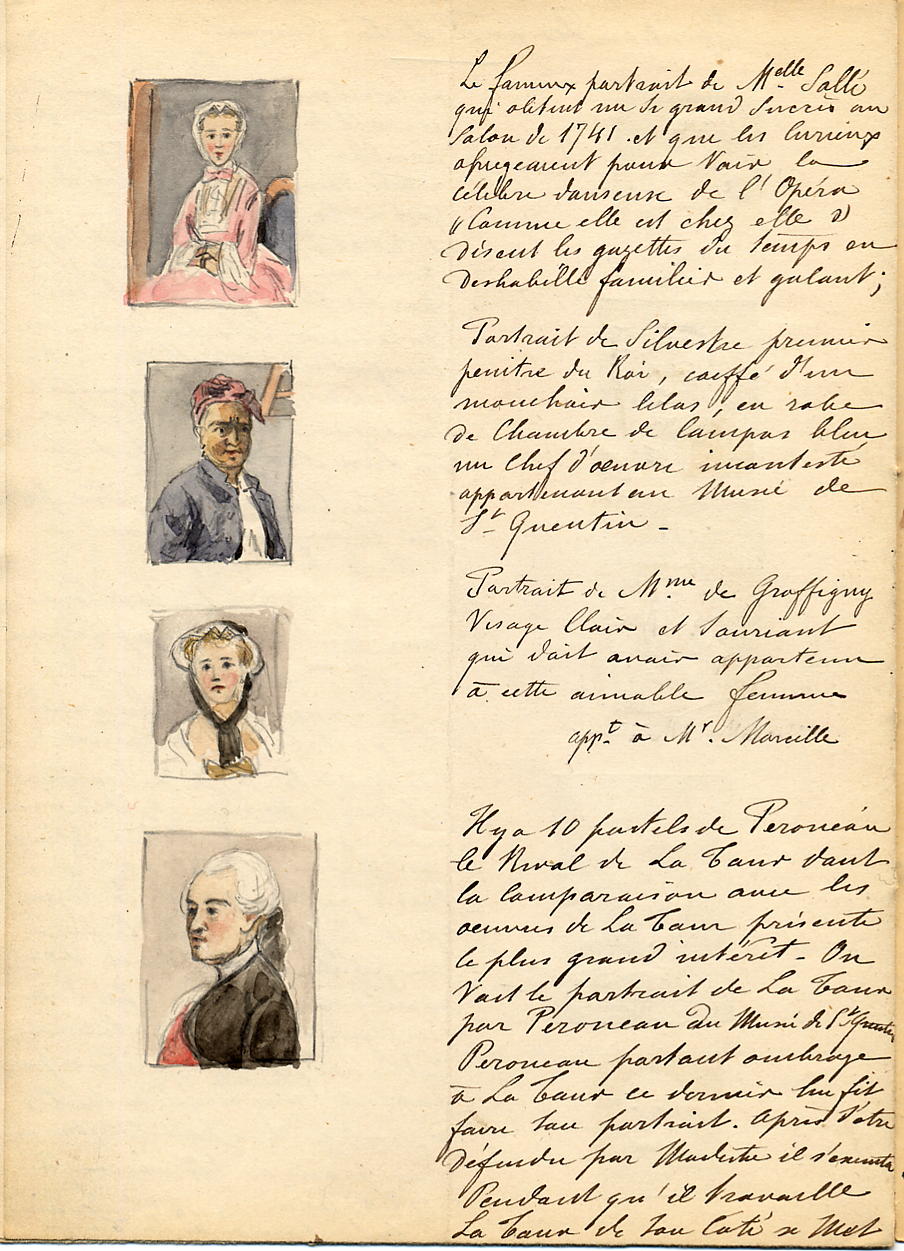 Le fameux portrait de Melle Sallé
qui obtint un si grand succès au
Salon de 1741 et que les curieux
assiegeaient pour voir la
célèbre danseuse de l'Opéra
"Comme elle est chez elle"
disent les gazettes du temps en
deshabillé familier et galant;
Portrait de Silvestre premier
peintre du Roi, coiffé d'un
mouchoir lilas, en robe
de Chambre de lampas bleu
un Chef d'œuvre incontesté
appartenant au Musée de
St Quentin -
Portrait de Mme de Graffigny
Visage Clair et Souriant
qui doit avoir appartenu
à cette aimable femme
appt à Mr. Marcille
Il y a 10 pastels de Peroneau
le Rival de La Tour dont
la Comparaison avec les
oeuvres de La Tour présente
le plus grand intérêt - On
voit le portrait de La Tour
par Peroneau du Musée de St Quentin
Peroneau portant ombrage
à La Tour ce dernier lui fit
faire son portrait. Après s'être
défendu par Modestie il s'executa
Pendant qu'il travaille
La Tour de son Coté se Met